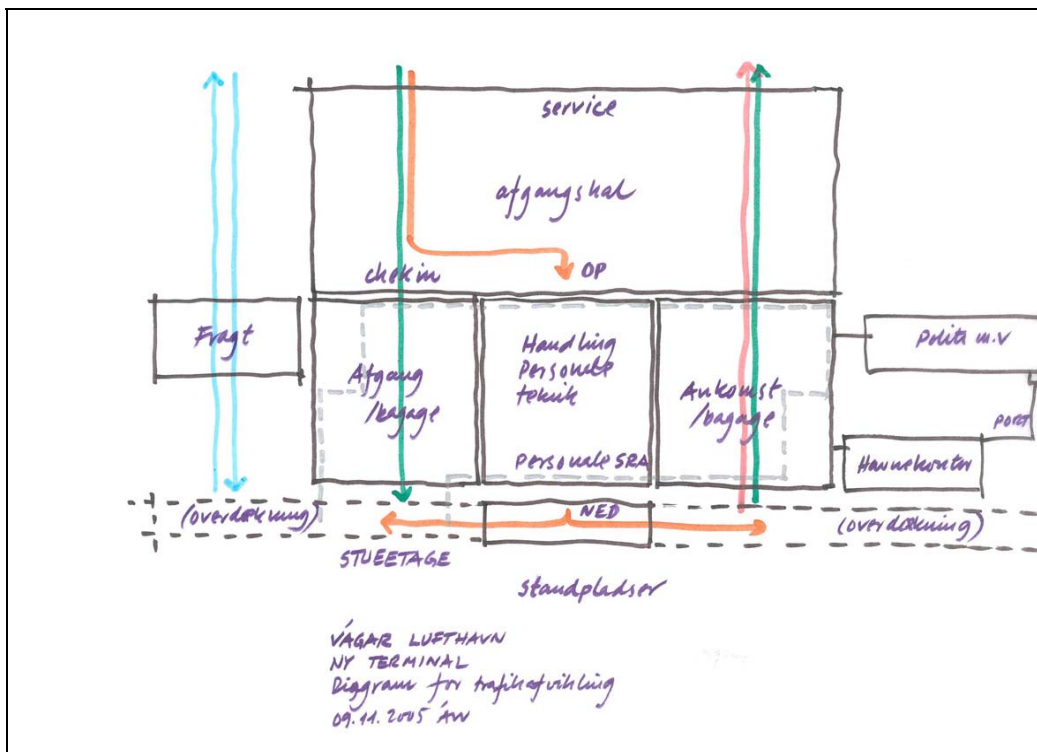 service
afgangshal
chekin
OP
Fragt
Afgang
/bagage
Handling
Personale
teknik
Ankomst
/bagage
Politi m.v
PORT
Havnekontor
Personale SRA
(overdækning)
NED
(overdækning)
STUEETAGE
Standpladser
VÁGAR LUFTHAVN
NY TERMINAL
Diagram for trafikafvikling
09.11.2005 ÁW